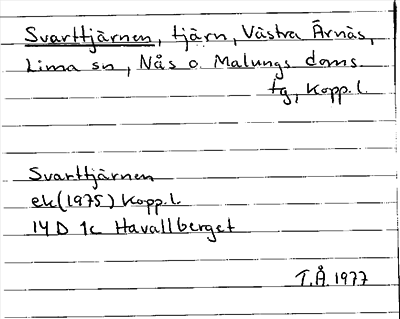 Svarttjärnen, tjärn, Västra Ärnäs,
Lima sn, Nås o. Malungs doms.
tg, Kopp. l.
Svarttjärnen
ek (1975) Kopp. l.
14 D 1c Havallberget
T.Å. 1977